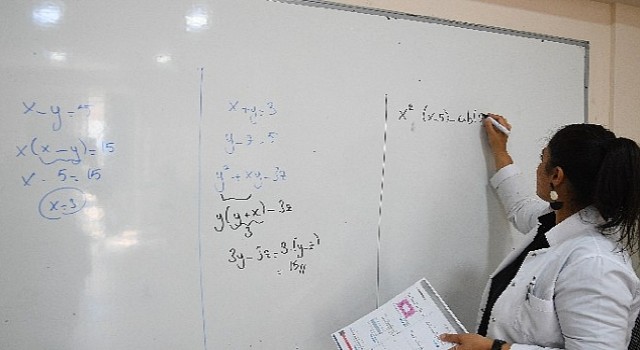 x - y = 5
x(x - y) = 15
x · 5 = 15
x = 3
x + y = 3
y - z = 5
y² + xy - 3z
y(y + x) - 3z
3
3y - 3z = 3·(y - z)
= 15//
x² (x-5)